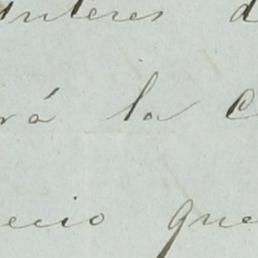 interes d
rá la C
ecio que